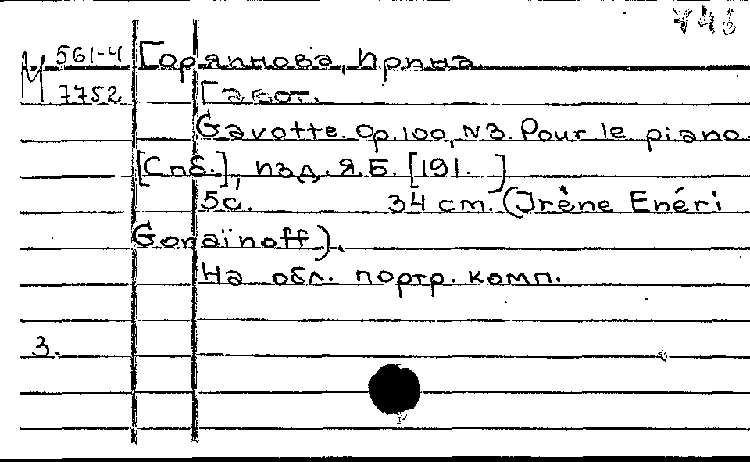 743
М 561-4 Горяинова, Ирина
7752 Гавот.
Gavotte. Op.100, N3. Pour le piano.
[Спб.], изд. Я.Б. [191. ]
5с. 34 cm. (Irène Enéri
Goraïnoff).
На обл. портр. комп.
3.